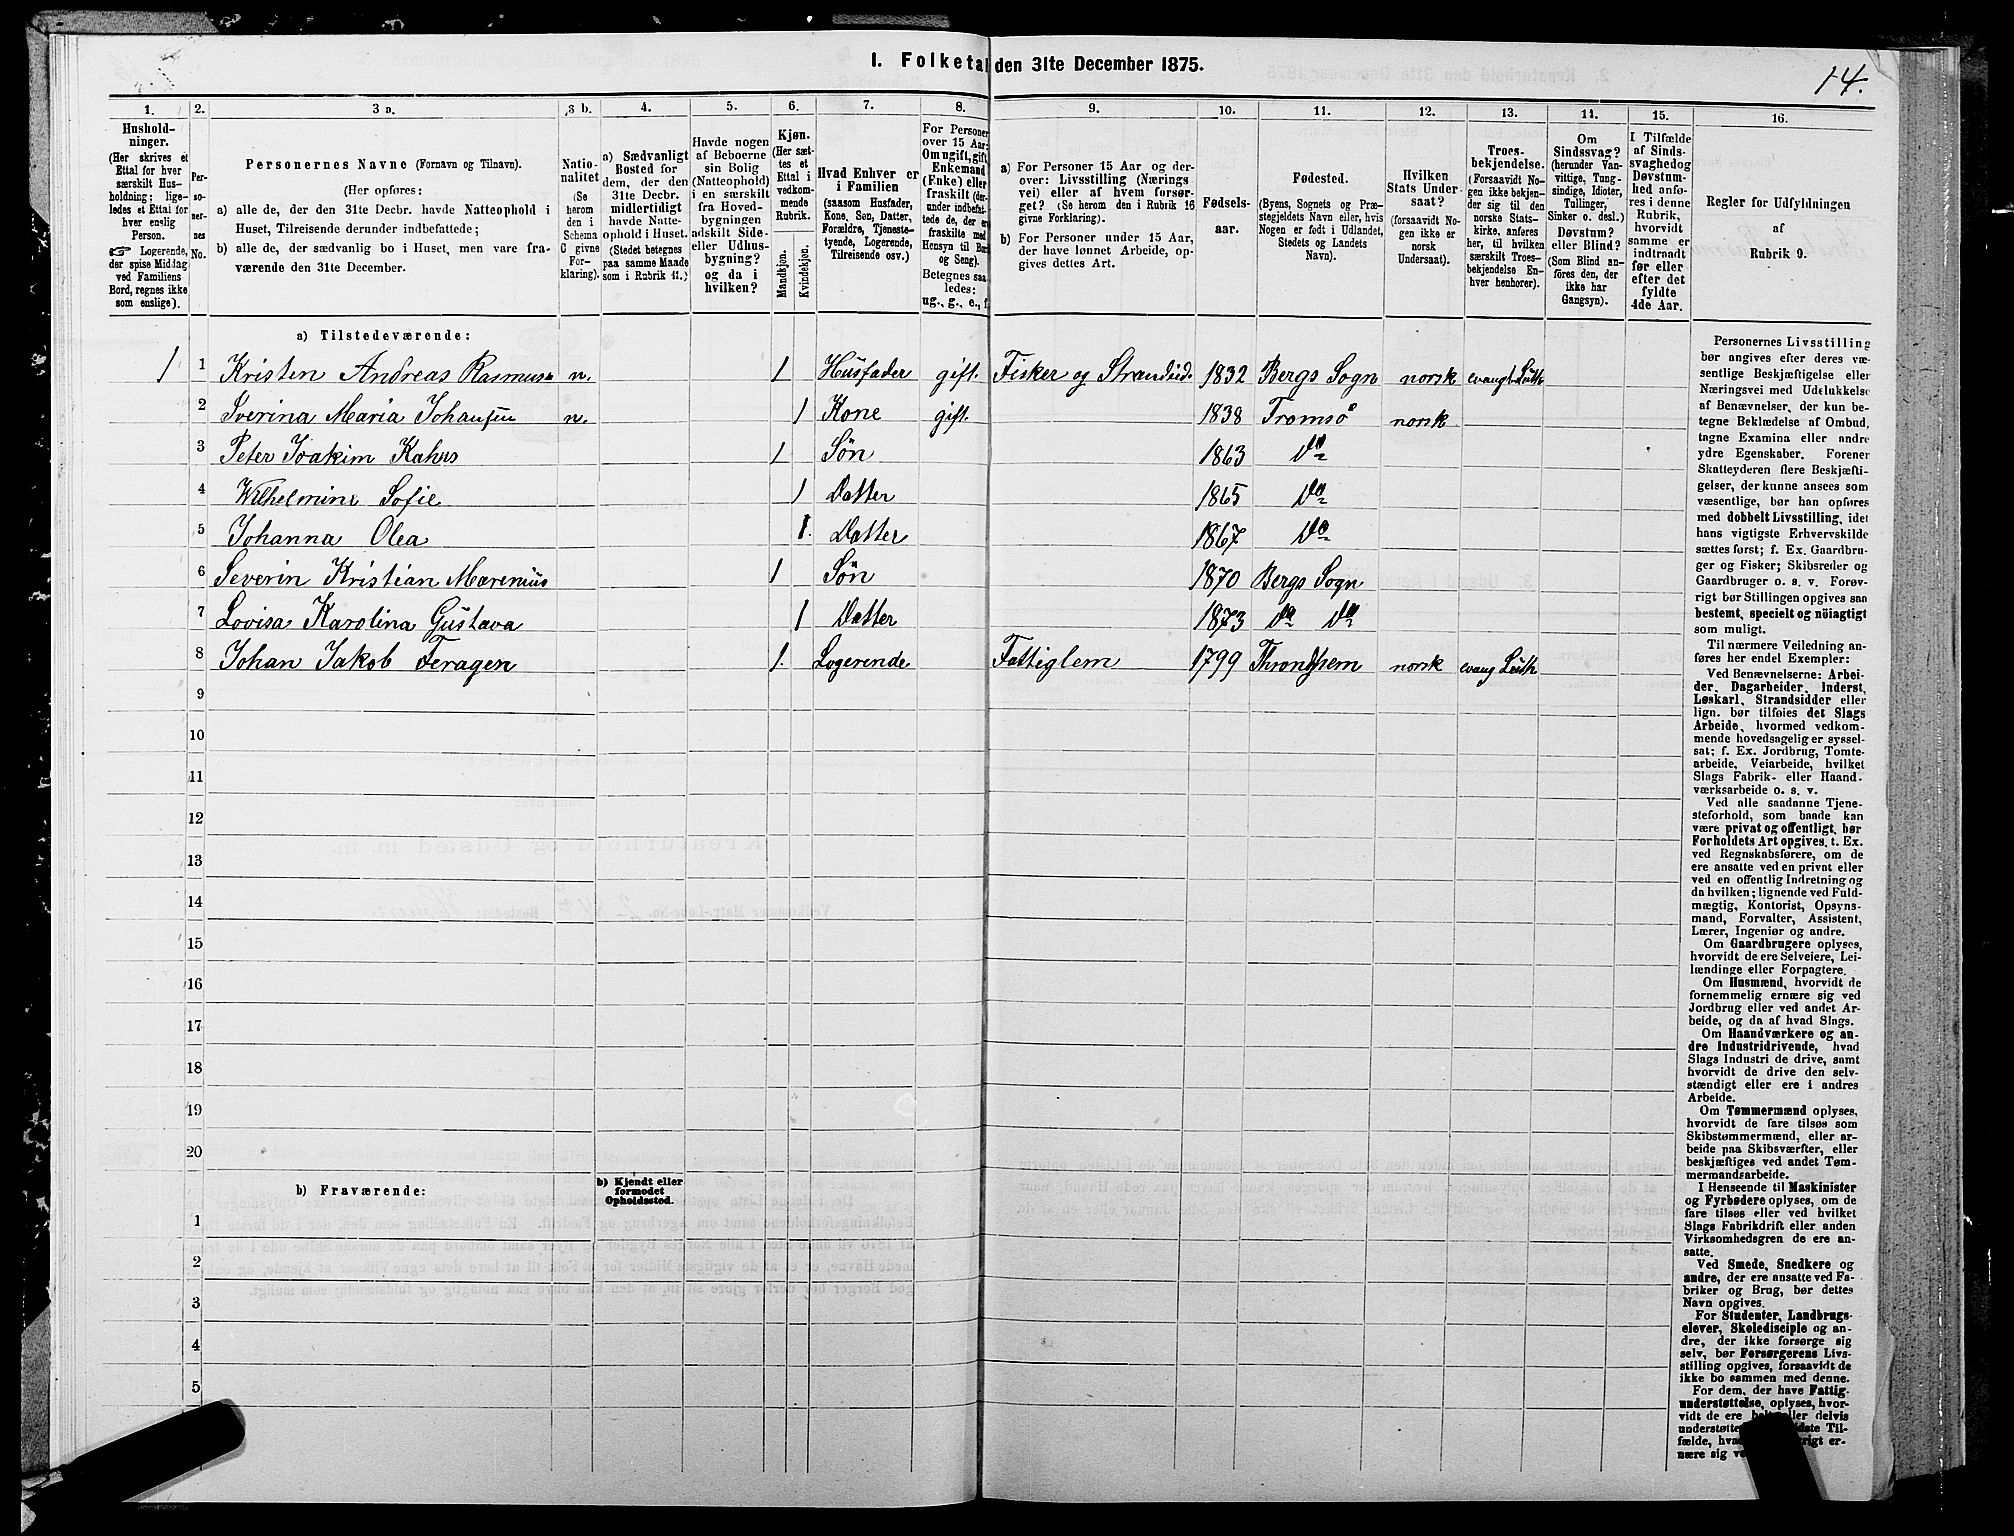 I. Folketal den 31te December 1875.
14.
1.
Hushold-
ninger.
(Her skrives et
Ettal for hver
særskilt Hus-
holdning; lige-
ledes et Ettal for
hver enslig
Person.
☞ Logerende,
der spise Middag
ved Familiens
Bord, regnes ikke
som enslige).
2.
Per-
so-
ner-
nes
No.
3 a.
Personernes Navne (Fornavn og Tilnavn).
(Her opføres:
a) alle de, der den 31te Decbr. havde Natteophold i
Huset, Tilreisende derunder indbefattede;
b) alle de, der sædvanlig bo i Huset, men vare fra-
værende den 31te December.
3 b.
Natio-
nalitet
(Se
herom
den i
Schema
C givne
For-
klaring).
4.
a) Sædvanligt
Bosted for
dem, der den
31te Decbr.
midlertidigt
havde Natte-
ophold i Huset.
(Stedet betegnes
paa samme Maade
som i Rubrik 11.)
5.
Havde nogen
af Beboerne
sin Bolig
(Natteophold)
i en særskilt
fra Hoved-
bygningen
adskilt Side-
eller Udhus-
bygning?
og da i
hvilken?
6.
Kjøn.
(Her sæt-
tes et
Ettal i
vedkom-
mende
Rubrik.
Mandkjøn.
Kvindekjøn.
7.
Hvad Enhver er
i Familien
(saasom Husfader,
Kone, Søn, Datter,
Forældre, Tjeneste-
tyende, Logerende,
Tilreisende osv.)
8.
For Personer
over 15 Aar:
Om ugift, gift
Enkemand
(Enke) eller
fraskilt (der-
under indbefat-
tede de, der er
fraskilte med
Hensyn til Bord
og Seng).
Betegnes saa-
ledes:
ug., g., e., f.
9.
a) For Personer 15 Aar og der-
over: Livsstilling (Nærings
vei) eller af hvem forsør-
get? (Se herom den i Rubrik 16
givne Forklaring).
b) For Personer under 15 Aar,
der have lønnet Arbeide, op-
gives dettes Art.
10.
Fødsels-
aar.
11.
Fødested.
(Byens, Sognets og Præ-
stegjeldets Navn eller, hvis
Nogen er født i Udlandet,
Stedets og Landets
Navn).
12.
Hvilken
Stats Under-
saat?
(forsaavidt No-
gen ikke er
norsk
Undersaat).
13.
Troes-
bekjendelse.
(Forsaavidt No-
gen ikke bekjen-
der sig til den
norske Stats-
kirke, anføres
her, til hvilken
særskilt Troes-
bekjendelse En-
hver henhører).
14.
Om
Sindssvag?
(herunder Van-
vittige, Tung-
sindige, Idioter,
Tullinger,
Sinker o. desl.)
Døvstum?
eller Blind?
(Som Blind an-
føres den, der
ikke har
Gangsyn).
15.
I Tilfælde
af Sinds-
svaghed og
Døvstum-
hed anfø-
res i denne
Rubrik,
hvorvidt
samme er
indtraadt
før eller
efter det
fyldte
4de Aar.
16.
Regler for Udfyldningen
af
Rubrik 9.
a) Tilstedeværende:
1 1 Kristen Andreas Rasmus n. 1 Husfader gift. Fisker og Strandsid. 1832 Bergs Sogn norsk evangl Luth
2 Sverina Maria Johansen n. 1 Kone gift. 1838 Tromsø norsk
3 Peter Joakim Kahrs 1 Søn 1863 Do
4 Wilhelmine Sofie 1 Datter 1865 Do
5 Johanna Olea 1. Datter 1867 Do
6 Severin Kristian Marenius 1 Søn 1870 Bergs Sogn
7 Lovisa Karolina Gustava 1 Datter 1873 Do Do
8 Johan Jakob Feragen 1. Logerende Fattiglem 1799 Throndhjem norsk evang Luth
9
10
11
12
13
14
15
16
17
18
19
20
b) Fraværende:
b) Kjendt eller
formodet
Opholdssted.
1
2
3
4
5
Personernes Livsstilling
bør angives efter deres væ-
sentlige Beskjæftigelse eller
Næringsvei med Udelukkelse
af Benævnelser, der kun be-
tegne Beklædelse af Ombud,
tagne Examina eller andre
ydre Egenskaber. Forener
Skatteyderen flere Beskjæfti-
gelser, der kunne ansees som
væsentlige, bør han opføres
med dobbelt Livsstilling, idet
hans vigtigste Erhvervskilde
sættes først; f. Ex. Gaardbru-
ger og Fisker; Skibsreder og
Gaardbruger o. s. v. Forøv-
rigt bør Stillingen opgives saa
bestemt, specielt og nöiagtigt
som muligt.
Til nærmere Veiledning an-
føres her endel Exempler:
Ved Benævnelserne: Arbei-
der, Dagarbeider, Inderst,
Løskarl, Strandsidder eller
lign. bør tilføies det Slags
Arbeide, hvormed vedkom-
mende hovedsagelig er syssel-
sat; f. Ex. Jordbrug, Tomte-
arbeide, Veiarbeide, hvilket
Slags Fabrik- eller Haand-
værksarbeide o. s. v.
Ved alle saadanne Tjene-
steforhold, som baade kan
være privat og offentligt, bør
Forholdets Art opgives, f. Ex.
ved Regnskabsførere, om de
ere ansatte ved en privat eller
ved en offentlig Indretning og
da hvilken; lignende ved Fuld-
mægtig, Kontorist, Opsyns-
mand, Forvalter, Assistent,
Lærer, Ingeniør og andre.
Om Gaardbrugere oplyses,
hvorvidt de ere Selveiere, Lei-
lændinge eller Forpagtere.
Om Husmænd, hvorvidt de
fornemmelig ernære sig ved
Jordbrug eller ved andet Ar-
beide, og da af hvad Slags.
Om Haandværkere og an-
dre Industridrivende, hvad
Slags Industri de drive, samt
hvorvidt de drive den selv-
stændigt eller ere i andres
Arbeide.
Om Tømmermænd oplyses,
hvorvidt de fare tilsøs som
Skibstømmermænd, eller ar-
beide paa Skibsværfter, eller
beskjæftiges ved andet Tøm-
mermandsarbeide.
I Henseende til Maskinister
og Fyrbødere oplyses, om de
fare tilsøs eller ved hvilket
Slags Fabrikdrift eller anden
Virksomhedsgren de ere an-
satte.
Ved Smede, Snedkere og
andre, der ere ansatte ved Fa-
briker og Brug, bør dettes
Navn opgives.
For Studenter, Landbrugs-
elever, Skoledisciple og an-
dre, der ikke forsørge sig
selv, bør Forsørgerens Livs-
stilling opgives, forsaavidt de
ikke bo sammen med denne.
For dem, der have Fattig-
understøttelse, oplyses, hvor-
vidt de ere eller delvis
understøtte Til-
fælde, er-
nære sig